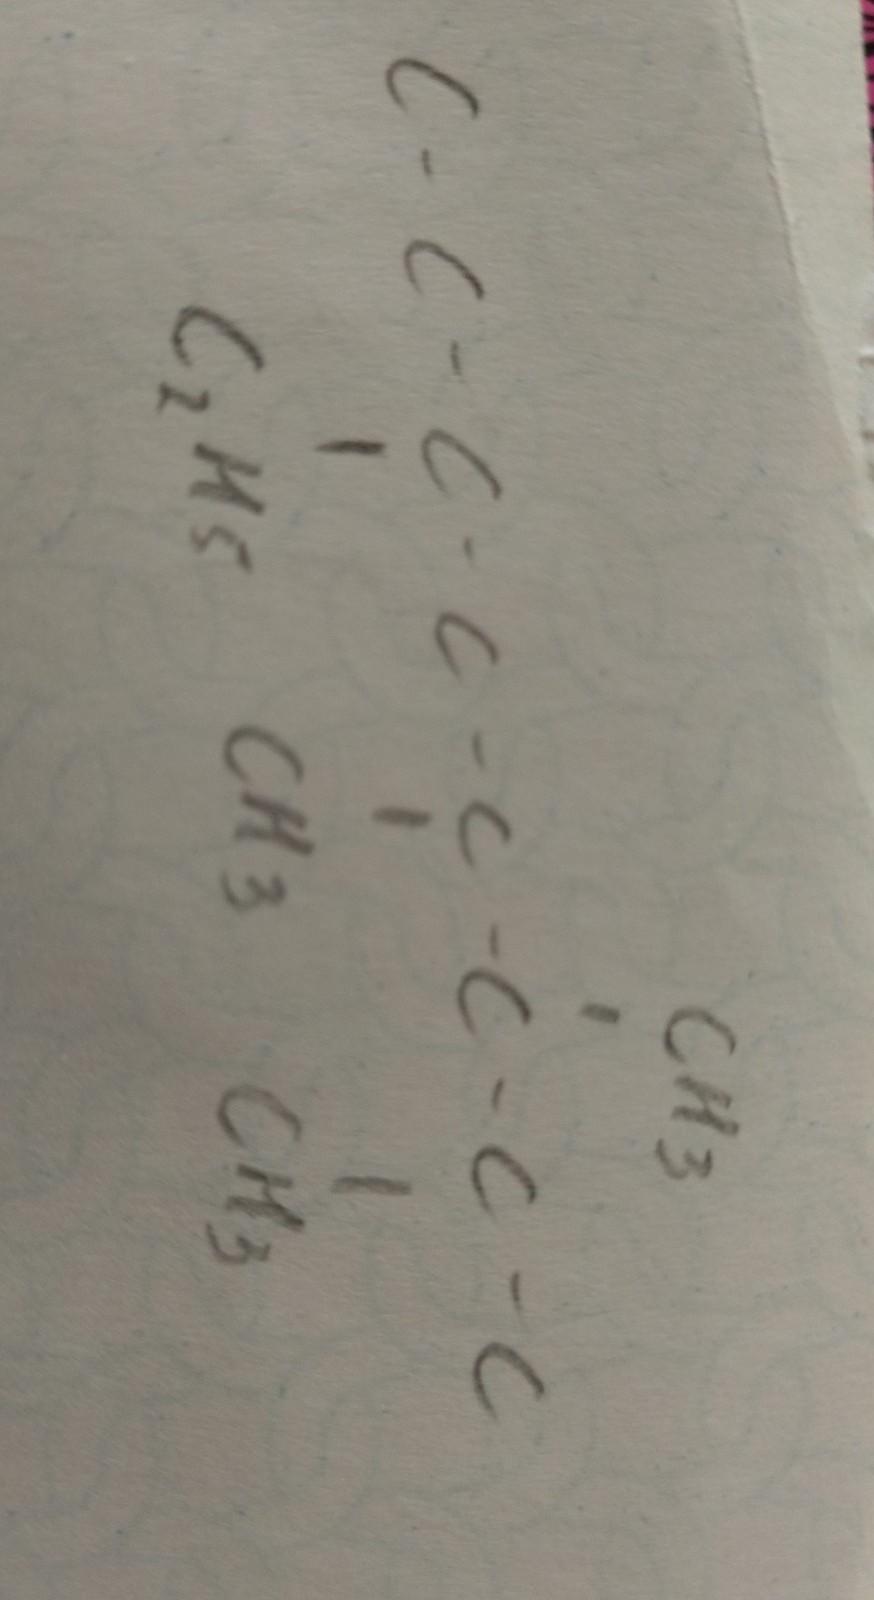 CH3
C - C - C - C - C - C - C - C
C2H5 CH3 CH3